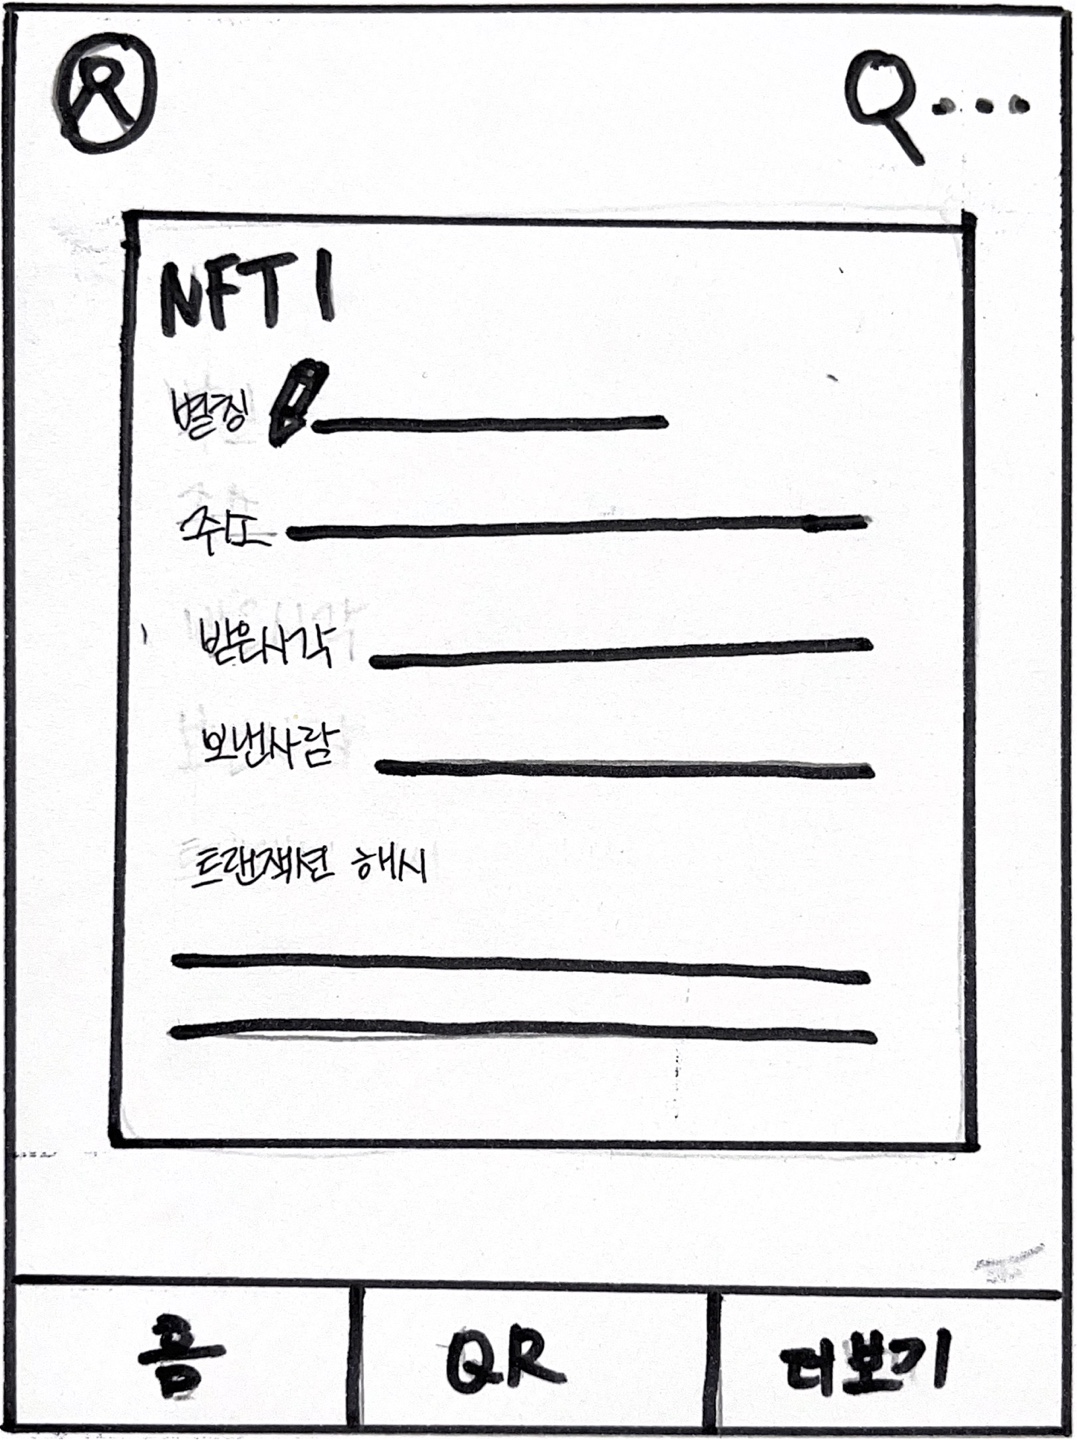 NFT 1
별칭
주소
받은시각
보낸사람
트랜잭션 해시
홈
QR
더보기